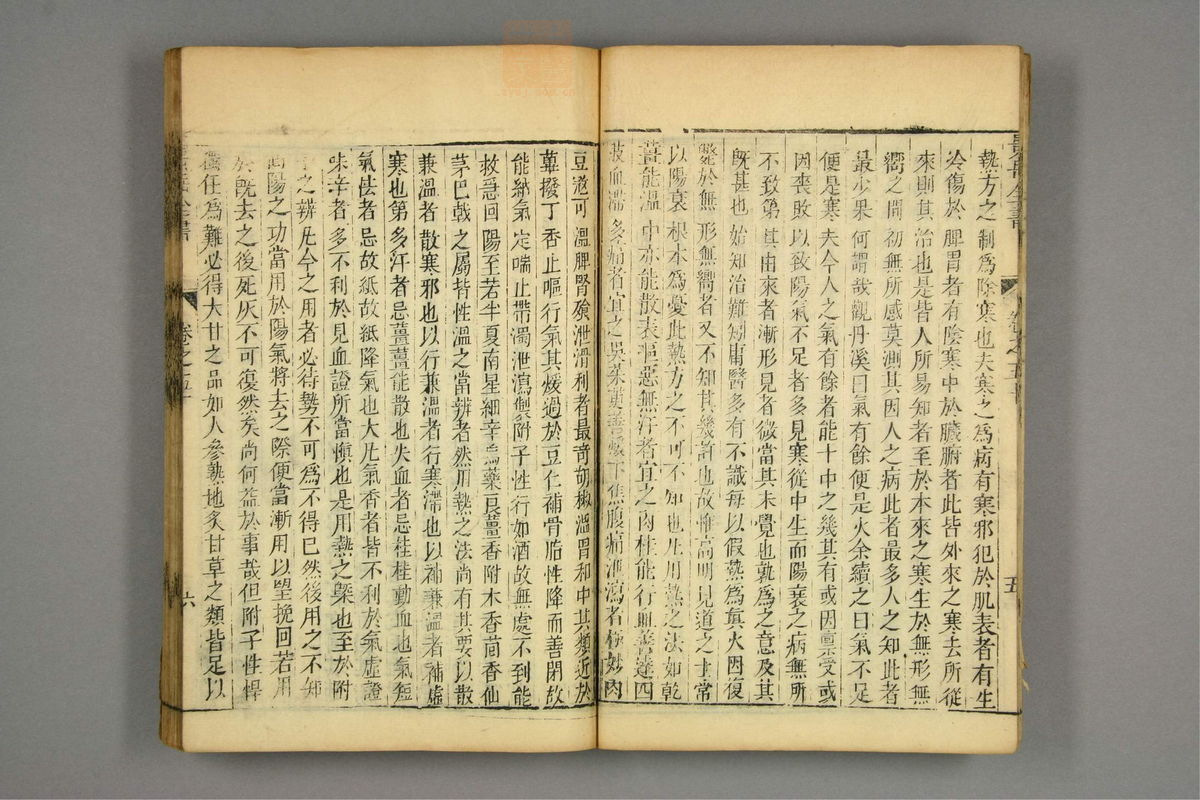 熱方之制為除寒也夫寒之為病有寒邪犯於肌表者有生
冷傷於脾胃者有陰寒中於臟腑者此皆外來之寒去所從
來則其治也是皆人所易知者至於本來之寒生於無形無
嚮之間初無所感莫測其因人之病此者最多人之知此者
最少果何謂哉觀丹溪曰氣有餘便是火余續之曰氣不足
便是寒夫今人之氣有餘者能十中之幾其有或因禀受或
因喪敗以致陽氣不足者多見寒從中生而陽衰之病無所
不致第其由來者漸形見者微當其未覺也孰為之意及其
既甚也始知治難矧庸醫多有不識每以假熱為真火因復
斃於無形無嚮者又不知其幾許也故惟高明見道之士常
以陽衰根本為憂此熱方之不可不知也凡用熱之法如乾
薑能温中亦能散表嘔惡無汗者宜之肉桂能行血善達四
肢血滯多痛者宜之吳茱萸善暖下焦腹痛泄瀉者極妙肉
豆蔻可溫脾腎飱泄滑利者最奇胡椒溫胃和中其類近於
蓽撥丁香止嘔行氣其煖過於豆仁補骨脂性降而善閉故
能納氣定喘止帶濁泄瀉製附子性行如酒故無處不到能
救急回陽至若半夏南星細辛烏藥良薑香附木香茴香仙
茅巴戟之屬皆性溫之當辨者然用熱之法尚有其要以散
兼溫者散寒邪也以行兼溫者行寒滯也以補兼溫者補虛
寒也第多汗者忌薑薑能散也失血者忌桂桂動血也氣短
氣怯者忌故紙故紙降氣也大凡氣香者皆不利於氣虛證
味辛者多不利於見血證所當慎也是用熱之槩也至於附
子之辨凡今之用者必待勢不可為不得已然後用之不知
回陽之功當用於陽氣將去之際便當漸用以望挽回若用
於既去之後死灰不可復然矣尚何益於事哉但附子性悍
獨任為難必得大甘之品如人參熟地炙甘草之類皆足以
卷之五十
五
六